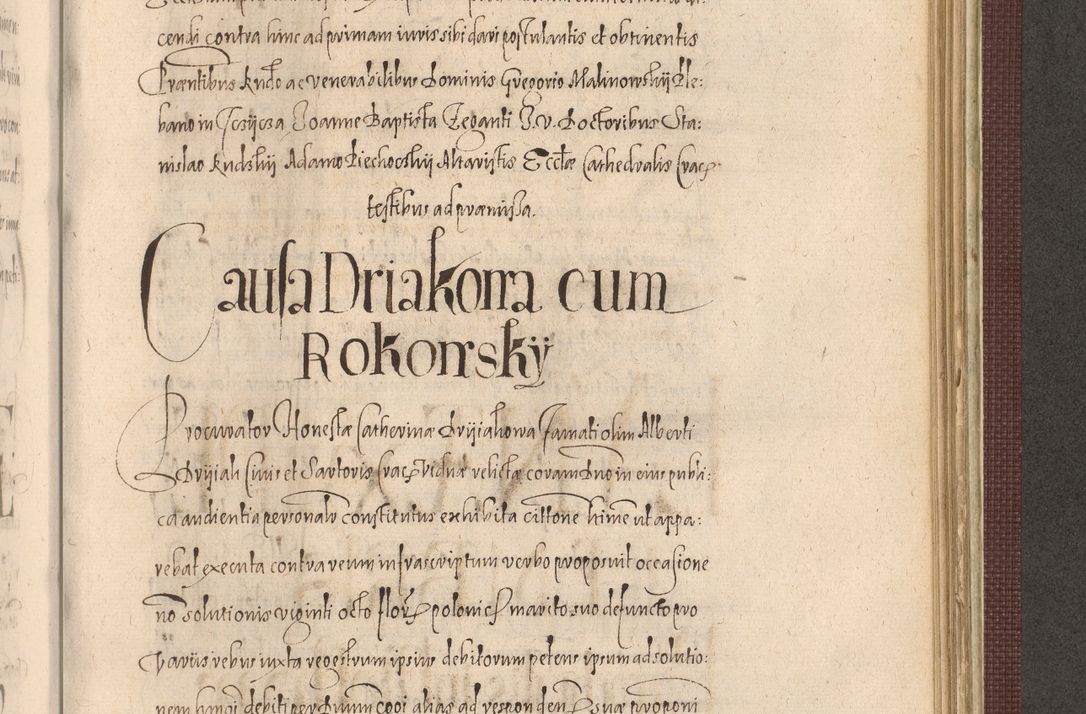 cendi contra hinc ad primam iuris sibi dari postulantis et obtinentis
Præntibus Rndo ac venerabilibus Dominis Gregorio Malinowskij Ple:
bano in Joanne Baptista Zeganti J. V. Doctoribus Sta:
nislao Rudskij Adamo Piechockij Altaristis Eccłæ Cathedralis Crac
testibus ad præmissa.
Causa Driakowa cum
Rokowsky
Procurator Honestæ Catherinæ Drijiakowa Famati olim Alberti
Drijiak Civis et Sartoris Crac viduæ relictæ coram Dno in eius publi:
ca audientia personalr constitutus exhibita cittone hinc ut appa:
rebat executa contra reum infrascriptum verbo proposuit occasione
nō solutionis viginti octo flor polonic marito suo defuncto pro
varus rebus iuxta regestrum ipsius debitorum petens ipsum ad solutio:
nem debiti per alias ad responden suæ proponi